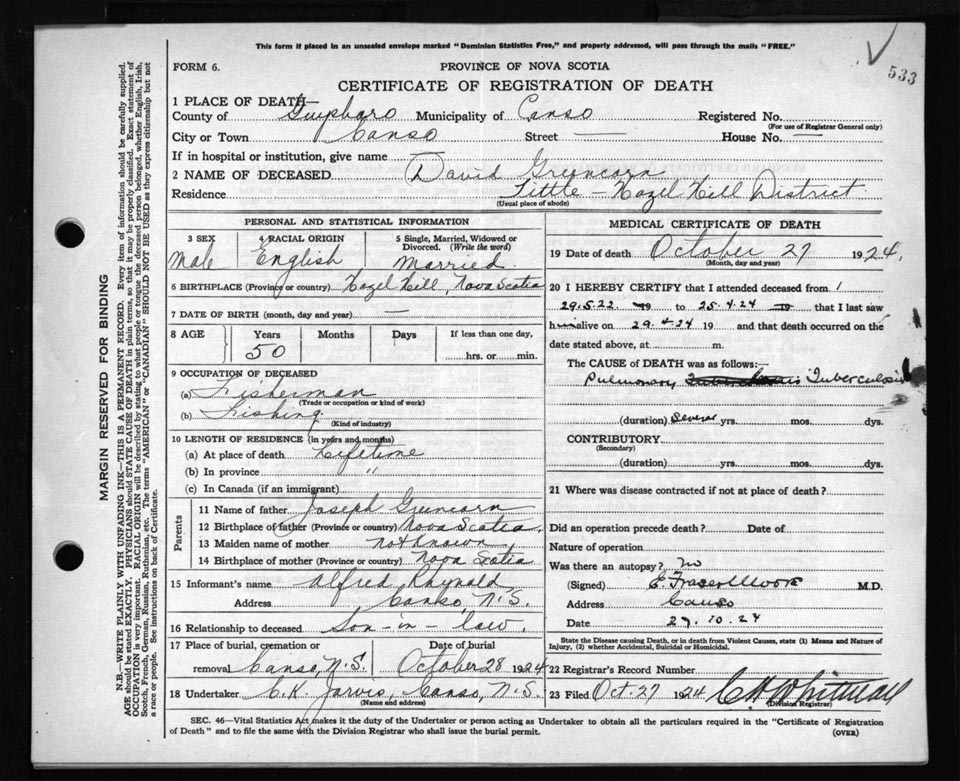 This form if placed in an unsealed envelope marked "Dominion Statistics Free," and properly addressed, will pass through the mails "FREE."
533
FORM 6.
PROVINCE OF NOVA SCOTIA
CERTIFICATE OF REGISTRATION OF DEATH
1 PLACE OF DEATH—
County of Guysboro Municipality of Canso Registered No.
(For use of Registrar General only)
City or Town Canso Street — House No. —
If in hospital or institution, give name
2 NAME OF DECEASED David Greencorn
Residence Tittle - Hazel Hill District
(Usual place of abode)
PERSONAL AND STATISTICAL INFORMATION
3 SEX Male
4 RACIAL ORIGIN English
5 Single, Married, Widowed or Divorced. (Write the word) Married
6 BIRTHPLACE (Province or country) Hazel Hill, Nova Scotia
7 DATE OF BIRTH (month, day and year) —
8 AGE Years Months Days If less than one day,
50 hrs. or min.
9 OCCUPATION OF DECEASED
(a) Fisherman
(Trade or occupation or kind of work)
(b) Fishing
(Kind of industry)
10 LENGTH OF RESIDENCE (in years and months)
(a) At place of death Lifetime
(b) In province "
(c) In Canada (if an immigrant)
Parents
11 Name of father Joseph Greencorn
12 Birthplace of father (Province or country) Nova Scotia.
13 Maiden name of mother not known
14 Birthplace of mother (Province or country) Nova Scotia
15 Informant's name Alfred Raynald
Address Canso, N.S.
16 Relationship to deceased Son-in-law.
17 Place of burial, cremation or removal Canso, N.S.
Date of burial October 28 1924
18 Undertaker C.K. Jarvis, Canso, N.S.
(Name and address)
MEDICAL CERTIFICATE OF DEATH
19 Date of death October 27 1924.
(Month, day and year)
20 I HEREBY CERTIFY that I attended deceased from
29.5.22 19 to 25.4.24 19 that I last saw
h alive on 29.4.24 19 and that death occurred on the
date stated above, at m.
The CAUSE of DEATH was as follows:—
Pulmonary Tuberculosis
(duration) Several yrs. mos. dys.
CONTRIBUTORY
(Secondary)
(duration) yrs. mos. dys.
21 Where was disease contracted if not at place of death?
Did an operation precede death? Date of
Nature of operation
Was there an autopsy? no
(Signed) E. Fraser Moore M.D.
Address Canso
27.10.24
State the Disease causing Death, or in death from Violent Causes, state (1) Means and Nature of
Injury, (2) whether Accidental, Suicidal or Homicidal.
22 Registrar's Record Number
23 Filed Oct. 27 1924 C H Whitman
(Division Registrar)
SEC. 46—Vital Statistics Act makes it the duty of the Undertaker or person acting as Undertaker to obtain all the particulars required in the "Certificate of Registration
of Death" and to file the same with the Division Registrar who shall issue the burial permit.
(OVER)
MARGIN RESERVED FOR BINDING
N.B.—WRITE PLAINLY WITH UNFADING INK—THIS IS A PERMANENT RECORD. Every item of information should be carefully supplied.
AGE should be stated EXACTLY. PHYSICIANS should STATE CAUSE OF DEATH in plain terms, so that it may be properly classified. Exact statement of
OCCUPATION is very important. RACIAL ORIGIN will be described by stating to what people or tongue the deceased person belonged, whether English, Irish,
Scotch, French, German, Russian, Ruthenian, etc. The terms "AMERICAN" or "CANADIAN" SHOULD NOT BE USED as they express citizenship but not
a race or people. See instructions on back of Certificate.